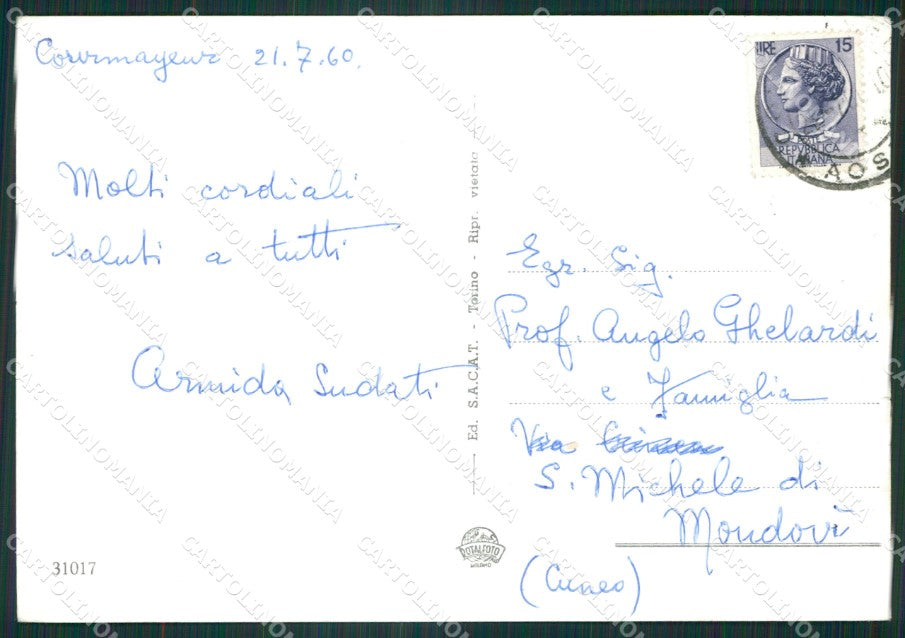 Courmayeur 21.7.60.
Molti cordiali
saluti a tutti
Armida Sudati
31017
Ed. S.A.C.A.T. - Torino - Ripr. vietata
LIRE 15
POSTE
REPVBBLICA
ITALIANA
AOS
Egr. Sig.
Prof. Angelo Ghelardi
e Famiglia
Via
S. Michele di
Mondovì
(Cuneo)
ROTALFOTO
MILANO
CARTOLINOMANIA